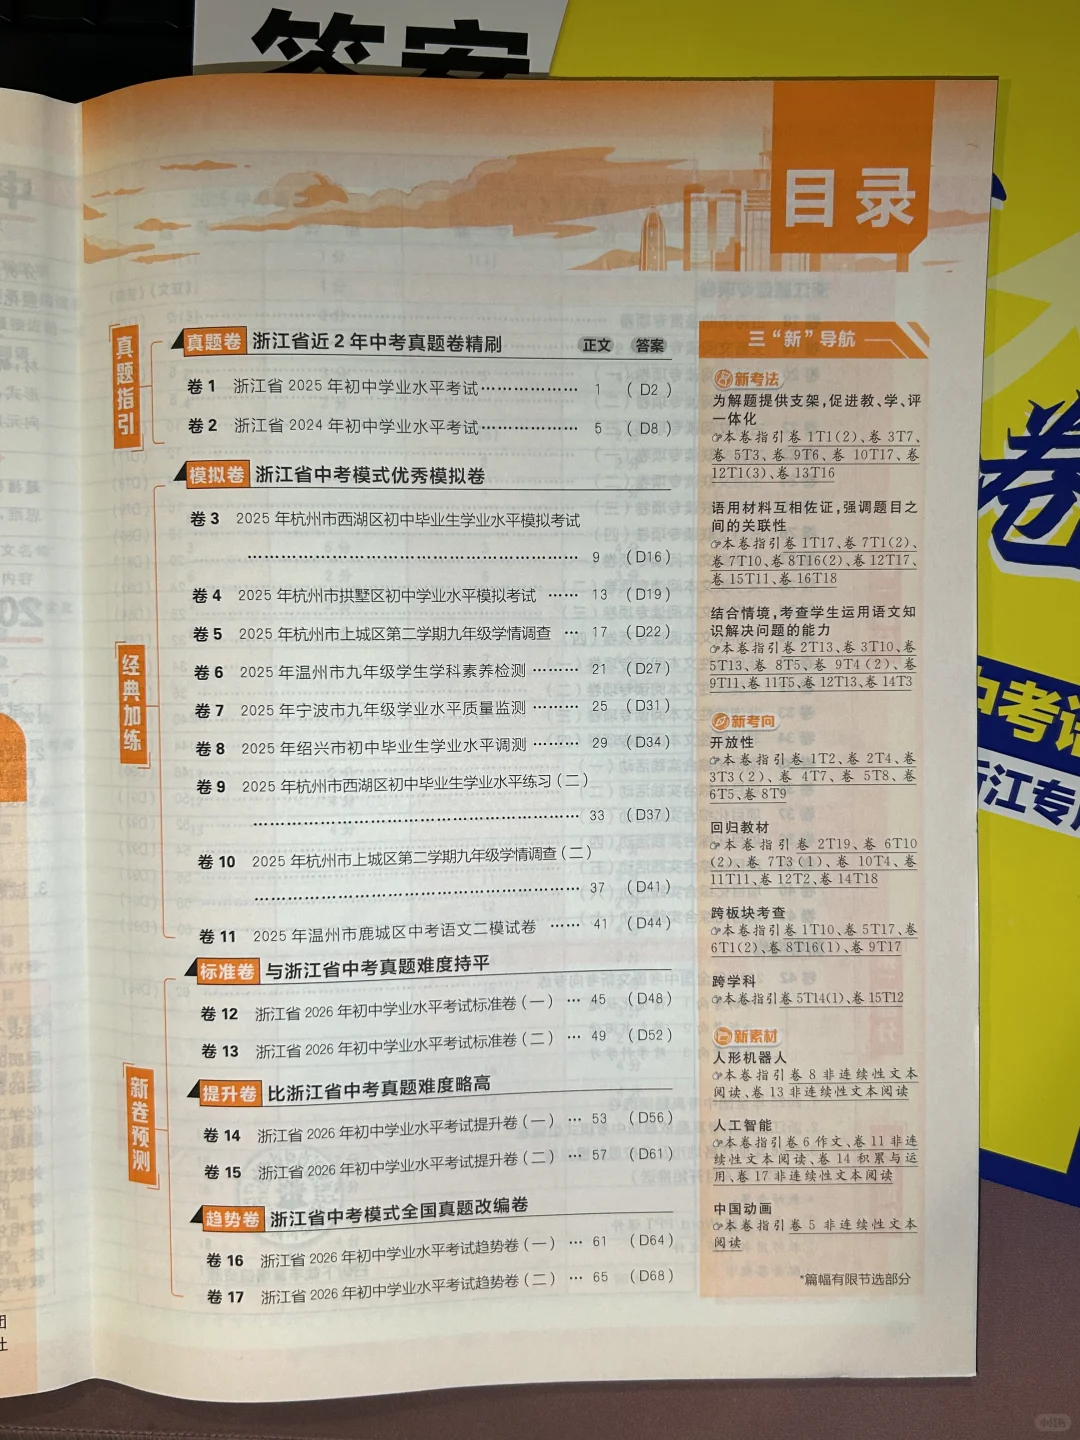 答案
目录
真题指引
真题卷 浙江省近2年中考真题卷精刷 正文 答案
卷1 浙江省 2025 年初中学业水平考试……………… 1 (D2)
卷2 浙江省 2024 年初中学业水平考试……………… 5 (D8)
经典加练
模拟卷 浙江省中考模式优秀模拟卷
卷3 2025 年杭州市西湖区初中毕业生学业水平模拟考试
…………………………………………………… 9 (D16)
卷4 2025 年杭州市拱墅区初中学业水平模拟考试 …… 13 (D19)
卷5 2025 年杭州市上城区第二学期九年级学情调查 … 17 (D22)
卷6 2025 年温州市九年级学生学科素养检测 ……… 21 (D27)
卷7 2025 年宁波市九年级学业水平质量监测 ……… 25 (D31)
卷8 2025 年绍兴市初中毕业生学业水平调测 ……… 29 (D34)
卷9 2025 年杭州市西湖区初中毕业生学业水平练习(二)
…………………………………………………… 33 (D37)
卷10 2025 年杭州市上城区第二学期九年级学情调查(二)
…………………………………………………… 37 (D41)
卷11 2025 年温州市鹿城区中考语文二模试卷 …… 41 (D44)
新卷预测
标准卷 与浙江省中考真题难度持平
卷12 浙江省 2026 年初中学业水平考试标准卷(一) … 45 (D48)
卷13 浙江省 2026 年初中学业水平考试标准卷(二) … 49 (D52)
提升卷 比浙江省中考真题难度略高
卷14 浙江省 2026 年初中学业水平考试提升卷(一) … 53 (D56)
卷15 浙江省 2026 年初中学业水平考试提升卷(二) … 57 (D61)
趋势卷 浙江省中考模式全国真题改编卷
卷16 浙江省 2026 年初中学业水平考试趋势卷(一) … 61 (D64)
卷17 浙江省 2026 年初中学业水平考试趋势卷(二) … 65 (D68)
三“新”导航
新考法
为解题提供支架,促进教、学、评
一体化
本卷指引卷 1T1(2)、卷 3T7、
卷 5T3、卷 9T6、卷 10T17、卷
12T1(3)、卷 13T16
语用材料互相佐证,强调题目之
间的关联性
本卷指引卷 1T17、卷 7T1(2)、
卷 7T10、卷 8T16(2)、卷 12T17、
卷 15T11、卷 16T18
结合情境,考查学生运用语文知
识解决问题的能力
本卷指引卷 2T13、卷 3T10、卷
5T13、卷 8T5、卷 9T4(2)、卷
9T11、卷 11T5、卷 12T13、卷 14T3
新考向
开放性
本卷指引卷 1T2、卷 2T4、卷
3T3(2)、卷 4T7、卷 5T8、卷
6T5、卷 8T9
回归教材
本卷指引卷 2T19、卷 6T10
(2)、卷 7T3(1)、卷 10T4、卷
11T11、卷 12T2、卷 14T18
跨板块考查
本卷指引卷 1T10、卷 5T17、卷
6T1(2)、卷 8T16(1)、卷 9T17
跨学科
本卷指引卷 5T14(1)、卷 15T12
新素材
人形机器人
本卷指引卷 8 非连续性文本
阅读、卷 13 非连续性文本阅读
人工智能
本卷指引卷 6 作文、卷 11 非连
续性文本阅读、卷 14 积累与运
用、卷 17 非连续性文本阅读
中国动画
本卷指引卷 5 非连续性文本
阅读
*篇幅有限节选部分
卷
中考试
浙江专